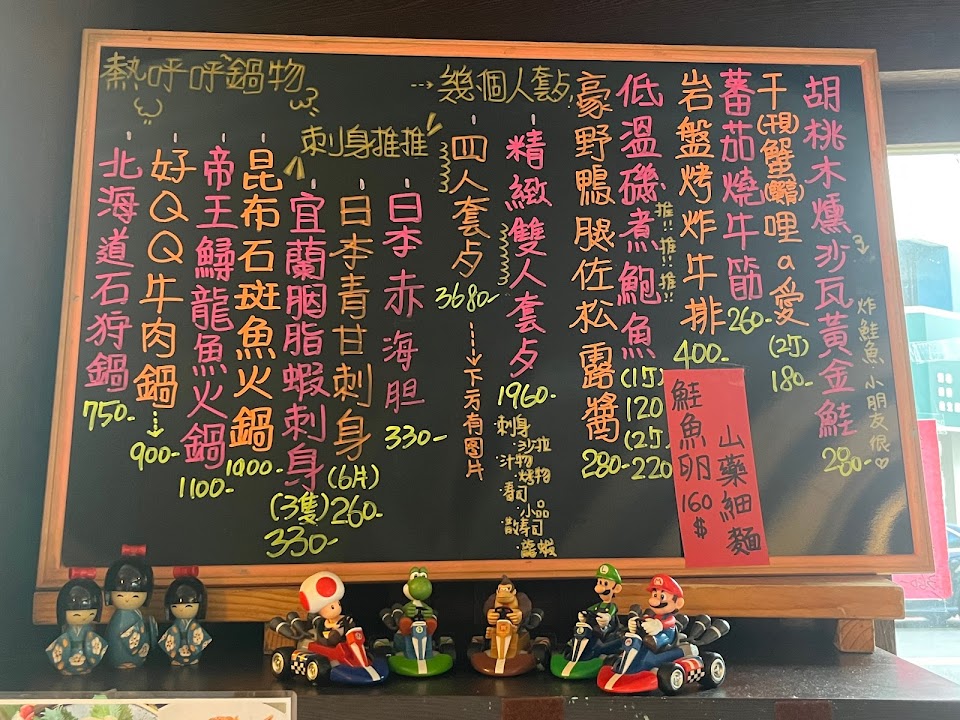 胡桃木燻沙瓦黃金鮭
280-
炸鮭魚 小朋友很♡
干(撋)蟹(鱶)哩a愛
(2訂)
180-
蕃茄燒牛筋
260-
岩盤烤炸牛排
400-
低溫磯煮鮑魚
推!!推!!推!!
(1訂)
120
(2訂)
220
豪野鴨腿佐松露醬
280-
鮭魚卵
160
$
山藥細麵
幾個人套夕!
精緻雙人套夕
1960-
刺身
·沙拉
·汁物
·烤物
·壽司
·小品
·散壽司
四人套夕
3680-
下方有圖片
刺身推推
日本赤海胆
330-
日本青甘刺身
(6片)
260-
宜蘭胭脂蝦刺身
(3隻)
330-
熱呼呼鍋物
昆布石斑魚火鍋
1000-
帝王鱘龍魚火鍋
1100-
好QQ牛肉鍋
900-
北海道石狩鍋
750-